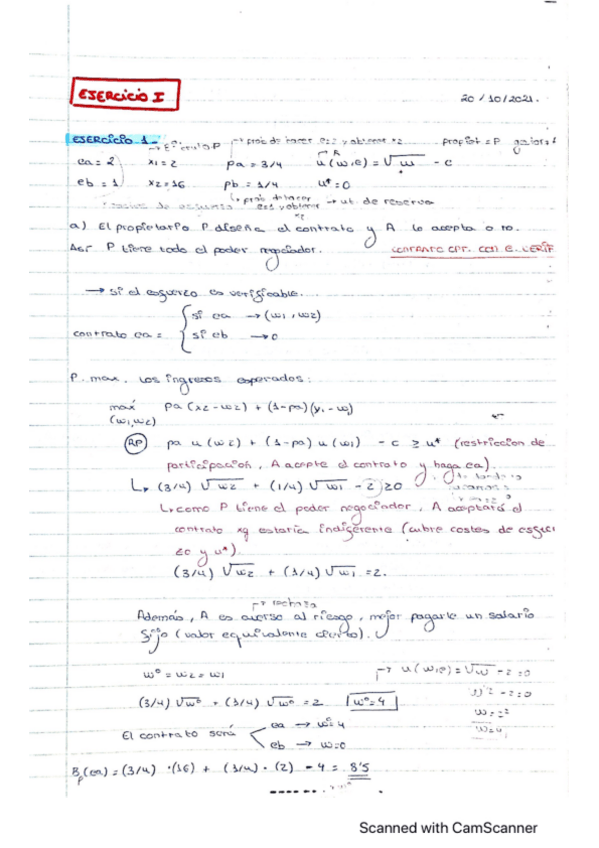 EJERCICIO I
20/10/2021.
EJERCICIO 1.- prob. de hacer e=2 y obtener x2
ea = 2 x1 = 2 pa = 3/4 u(w,e) = √w - c
eb = 1 x2 = 16 pb = 1/4 u* = 0
ut. de reserva
a) El propietario P diseña el contrato y A lo acepta o no.
Así P tiene todo el poder negociador.
→ Si el esfuerzo es verificable.
contrato ea = { si ea → (w1, w2)
si eb → 0
P. max. los ingresos esperados:
máx pa (x2 - w2) + (1-pa)(x1 - w1)
(w1, w2)
RP pa u(w2) + (1-pa) u(w1) - c ≥ u* (restricción de
participación, A acepte el contrato y haga ea).
↳ (3/4) √w2 + (1/4) √w1 - 2 ≥ 0
↳ como P tiene el poder negociador, A aceptará el
contrato xq estaría indiferente (cubre costes de esfuer
zo y u*).
(3/4) √w2 + (1/4) √w1 = 2.
→ rechaza
Además, A es averso al riesgo, mejor pagarle un salario
fijo (valor equivalente cierto).
w⁰ = w2 = w1
→ u(w,e) = √w - 2 = 0
(3/4) √w⁰ + (1/4) √w⁰ = 2 w⁰ = 4
El contrato será ea → w⁰ = 4
eb → w = 0
Bp(ea) = (3/4) · (16) + (1/4) · (2) - 4 = 8'5
Scanned with CamScanner